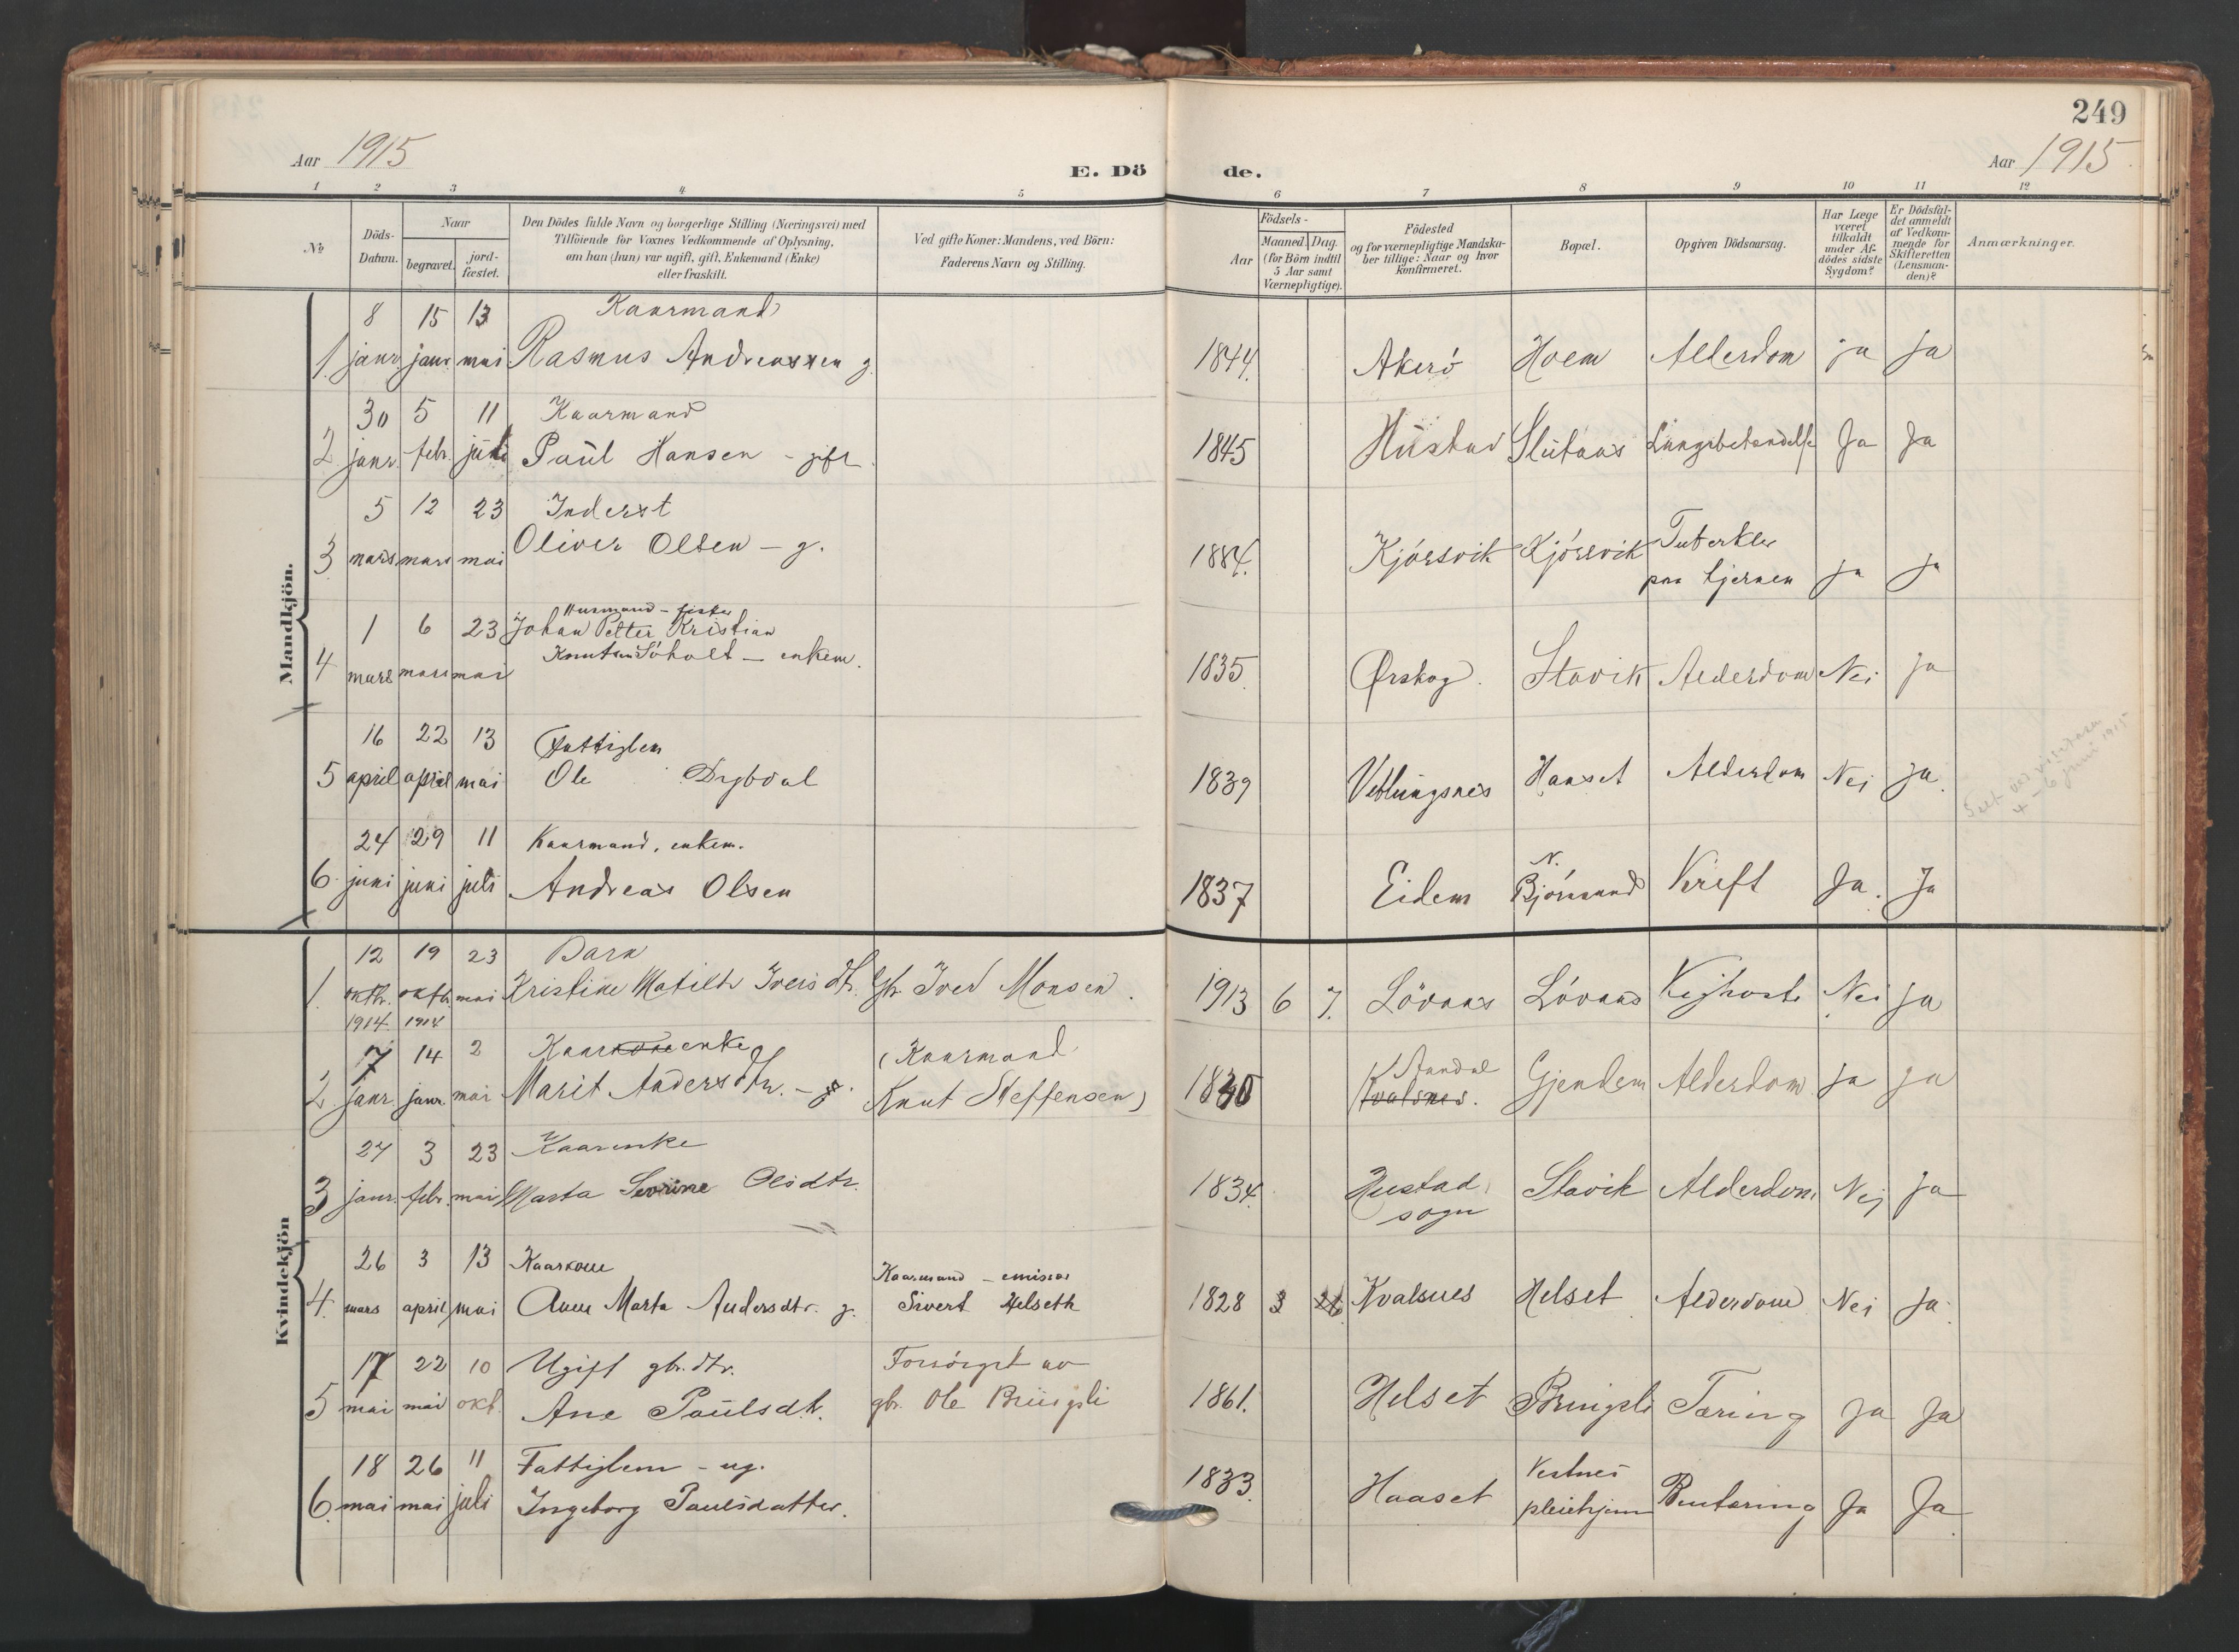 249
Aar 1915
E. Dö
de.
Aar 1915
1 2 3 4 5 6 7 8 9 10 11 12
No
Döds-Datum.
Naar
begravet.
jord-fæstet.
Den Dödes fulde Navn og borgerlige Stilling (Næringsvei) med
Tilföiende for Voxnes Vedkommende af Oplysning,
om han (hun) var ugift, gift, Enkemand (Enke)
eller fraskilt.
Ved gifte Koner: Mandens, ved Börn:
Faderens Navn og Stilling.
Födsels-
Aar
Maaned. Dag.
(for Börn indtil
5 Aar samt
Værnepligtige).
Födested
og for værnepligtige Mandska-
ber tillige: Naar og hvor
konfirmeret.
Bopæl.
Opgiven Dödsaarsag.
Har Læge
været
tilkaldt
under Af-
dödes sidste
Sygdom?
Er Dödsfal-
det anmeldt
af Vedkom-
mende for
Skifteretten
(Lensman-
den)?
Anmærkninger.
Mandkjön.
8 15 13 Kaarmand
1. janr. janr. mai Rasmus Andreassen g. 1844. Akerö Hoem Alderdom ja ja
30 5 11 Kaarmand
2 janr. febr. juli Paul Hansen - gift. 1845 Hustad Slutaas Ja Ja
5 12 23 Inderst
3 mars mars mai Oliver Olsen - g. 1884. Kjörsvik Kjörsvik Tuberkler
paa hjernen ja ja
1 6 23 Husmand - fisker
Johan Petter Kristian
4 mars mars mai Knutsen Söholt - enkem. 1835. Ørskog. Stavik Alderdom Nei ja
16 22 13 Fattiglem
5 april april mai Ole Drybdal 1839 Veblungsnes Hanset Alderdom Nei ja.
4 - 6 juni 1915
24 29 11 Kaarmand, enkem.
6. juni juni juli Andreas Olsen 1837 Eidem N.
Björnsund Kreft Ja. Ja
Kvindekjön
12 19 23 Barn
1. oktb. oktb. mai Kristine Matilde Iversdtr. Gbr. Iver Monsen. 1913 6 7. Lövaas Lövaas Kighoste Nei ja
1914. 1914
7 14 2 Kaarkone enke (Kaarmand
2. janr. janr. mai Marit Andersdtr. - g. Knut Steffensen) 1830 Aandal
Kvalsnes. Gjendem Alderdom ja ja
27 3 23 Kaarenke
3 janr. febr. mai Marta Sevrine Olsdtr. 1834. Hustad
sogn Stavik Alderdom Nej ja
26 3 13 Kaarkone Kaarmand - emissær
4. mars april mai Anne Marta Andersdtr. g. Sivert Helseth 1828 3 26. Kvalsnes Helset Alderdom Nei ja.
17 22 10 Ugift gbr. dtr. Forsörget av
5 mai mai okt. Ane Paulsdtr. gbr. Ole Bringsli 1861. Helset Bringsli Tæring ja Ja
18 26 11 Fattiglem - ug.
6. mai mai juli Ingeborg Paulsdatter. 1833. Haaset Vestnes
pleiehjem Bentæring Ja Ja